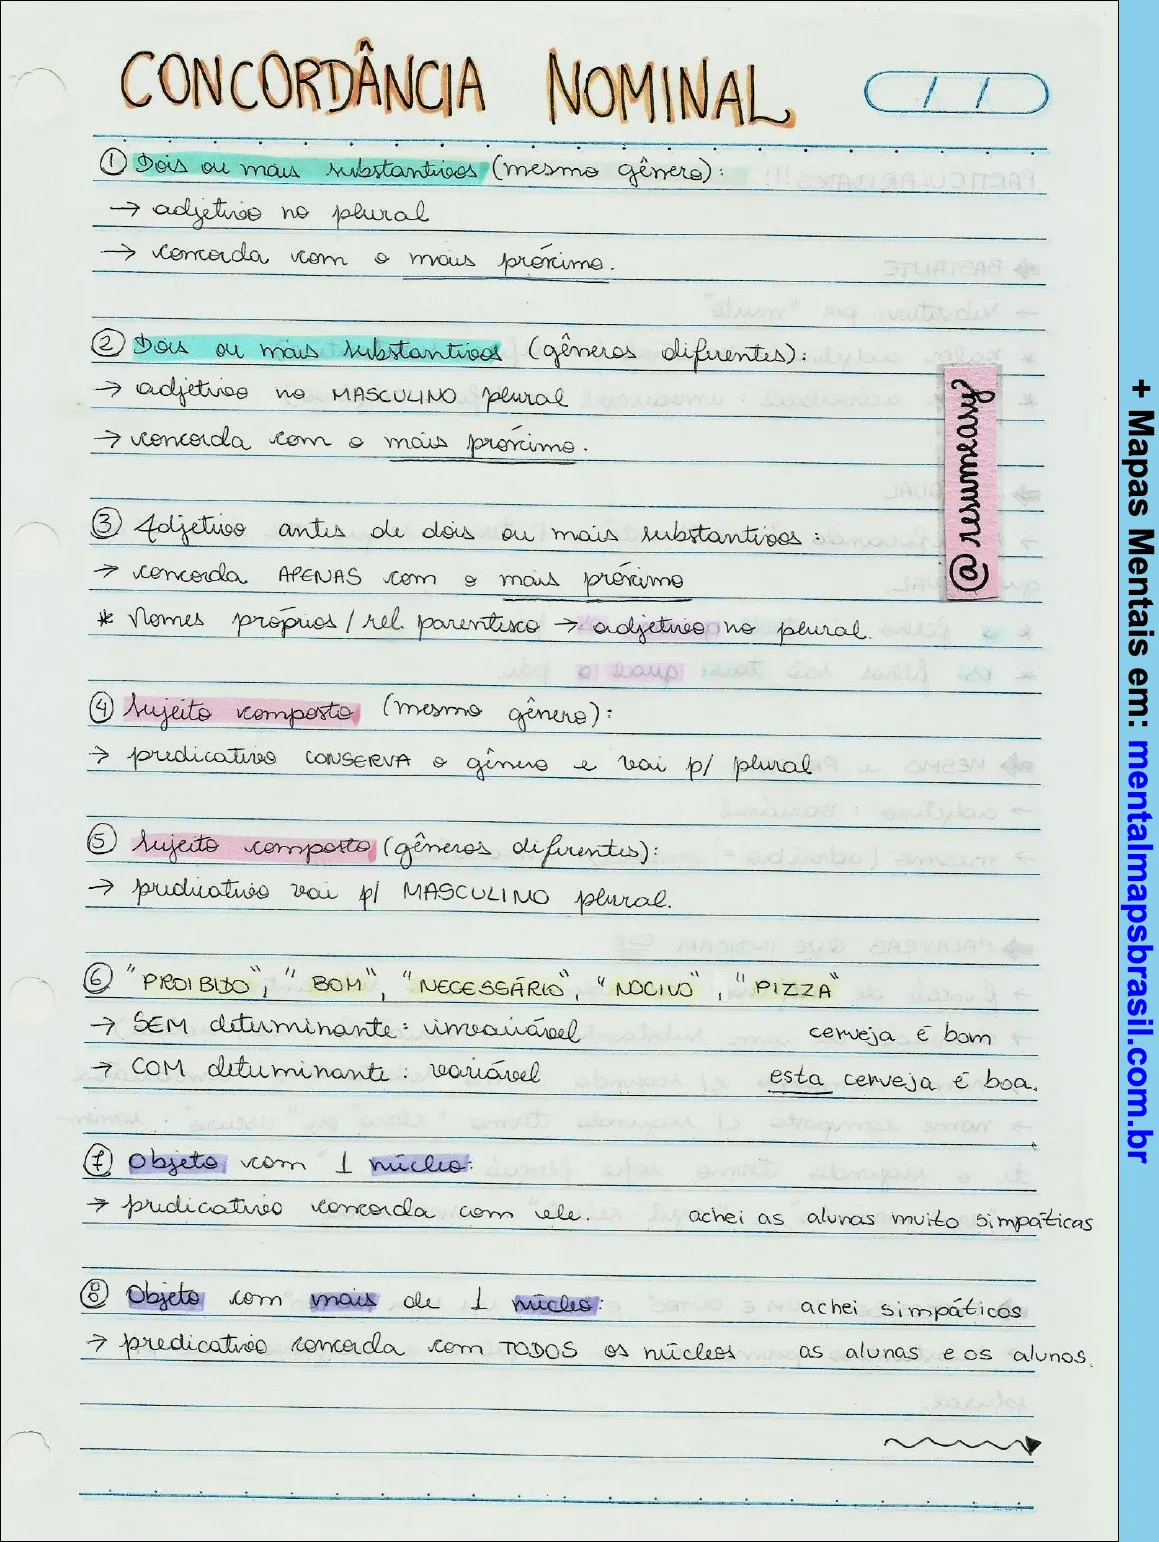 CONCORDÂNCIA NOMINAL
① Dois ou mais substantivos (mesmo gênero):
→ adjetivo no plural
→ concorda com o mais próximo.
② Dois ou mais substantivos (gêneros diferentes):
→ adjetivo no MASCULINO plural
→ concorda com o mais próximo.
@resumesray
③ Adjetivo antes de dois ou mais substantivos:
→ concorda APENAS com o mais próximo
* Nomes próprios / rel. parentesco → adjetivo no plural.
④ Sujeito composto (mesmo gênero):
→ predicativo CONSERVA o gênero e vai p/ plural
⑤ Sujeito composto (gêneros diferentes):
→ predicativo vai p/ MASCULINO plural.
⑥ "PROIBIDO", "BOM", "NECESSÁRIO", "NOCIVO", "PIZZA"
→ SEM determinante: invariável cerveja é bom
→ COM determinante: variável esta cerveja é boa.
⑦ Objeto com 1 núcleo:
→ predicativo concorda com ele. achei as alunas muito simpáticas
⑧ Objeto com mais de 1 núcleo: achei simpáticos
→ predicativo concorda com TODOS os núcleos as alunas e os alunos.
+ Mapas Mentais em: mentalmapsbrasil.com.br